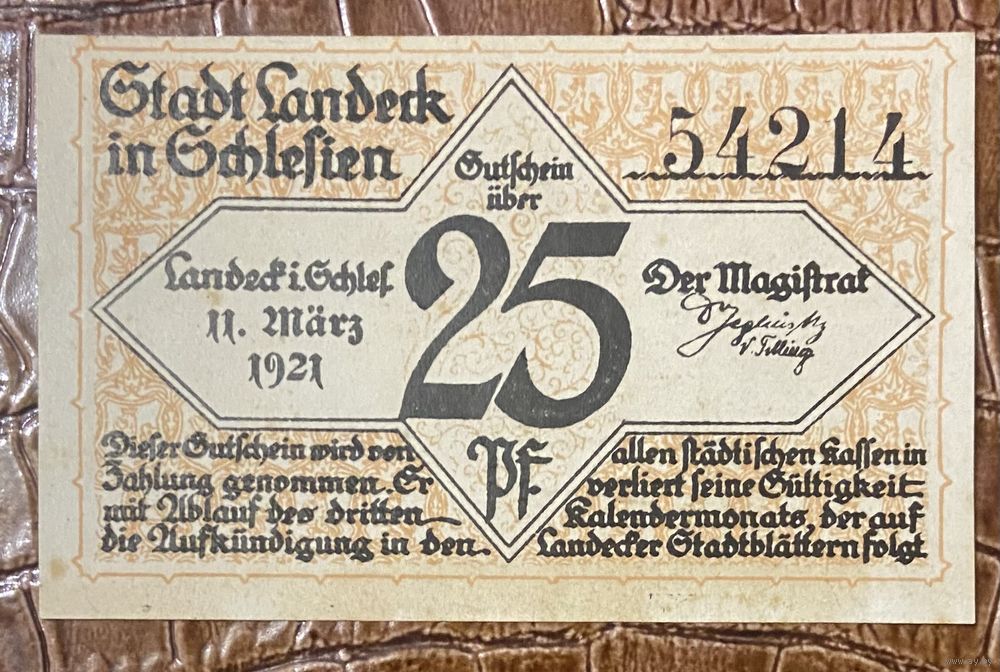 Stadt Landeck
in Schlesien
54214
Gutschein
über
25
Pf.
Landeck i. Schles.
11. März
1921
Der Magistrat
Dieser Gutschein wird von allen städtischen Kassen in
Zahlung genommen. Er verliert seine Gültigkeit
mit Ablauf des dritten Kalendermonats, der auf
die Aufkündigung in den Landecker Stadtblättern folgt
www.ay.by